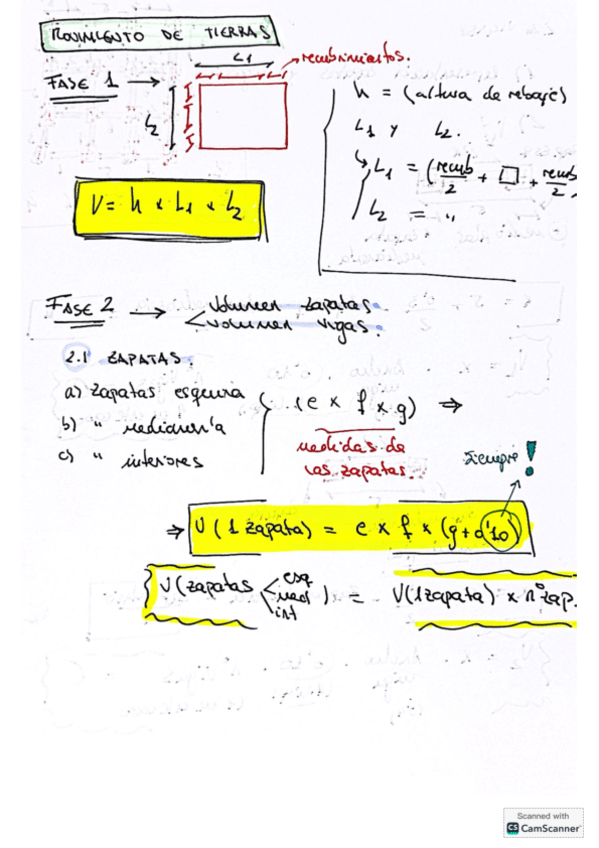 MOVIMIENTO DE TIERRAS
FASE 1 →
L1
recubrimientos.
L2
h = (altura de rebaje)
L1 y L2.
L1 = (recub/2 + □ + recub/2)
L2 = "
V = h x L1 x L2
FASE 2 → < volumen zapatas.
volumen vigas.
2.1 ZAPATAS.
a) zapatas esquina
b) " medianería
c) " interiores
(e x f x g) ⇒
medidas de
las zapatas.
siempre!
⇒ V (1 zapata) = e x f x (g+0'10)
V(zapatas < esq med int) = V(1zapata) x nº zap.
Scanned with
CS CamScanner